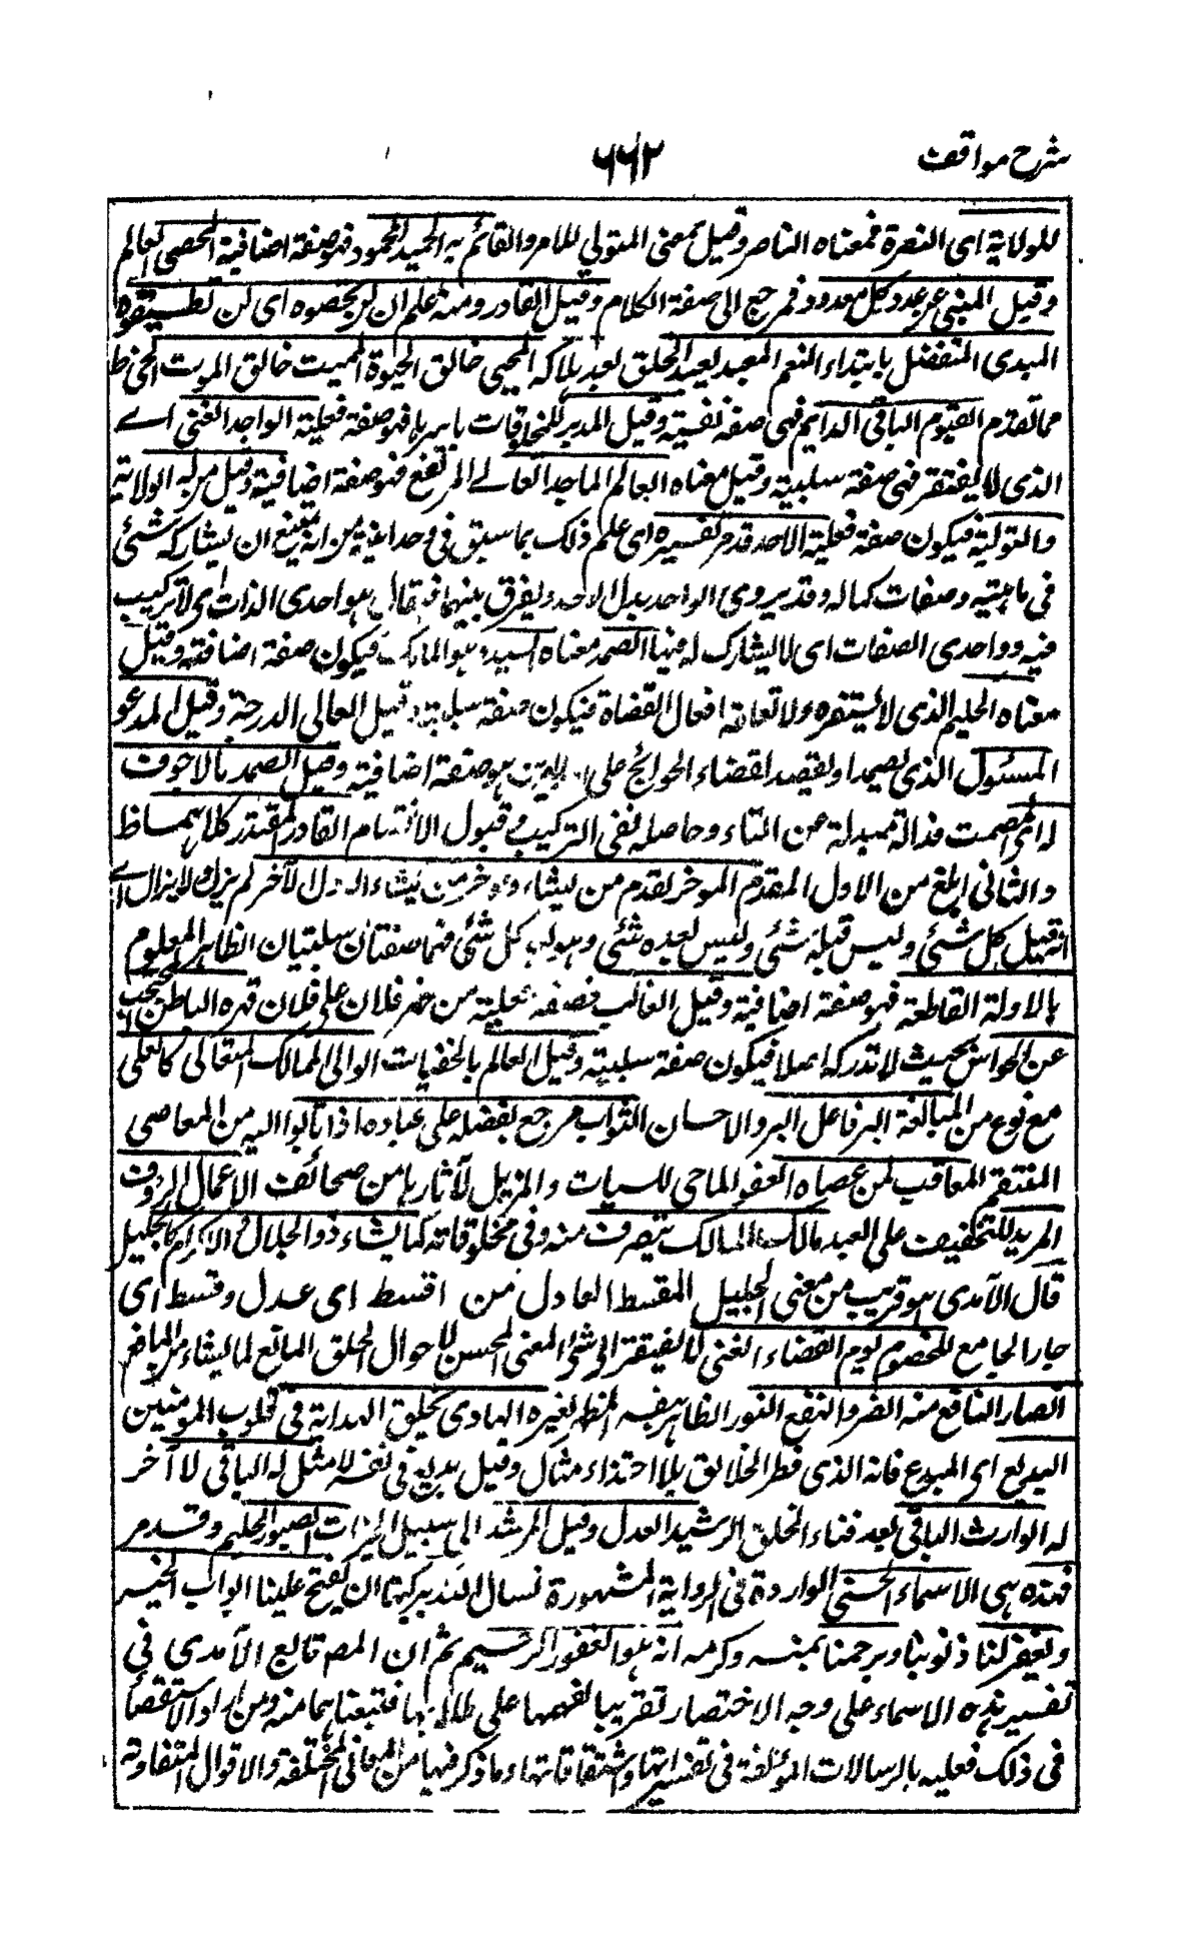 شرح مواقف ٦٦٢
للولاية اى النصرة فمعناه الناصر وقيل بمعنى المتولي للامر والقائم به الحميد المحمود فهو صفة اضافية المحصى العالم
وقيل المنبئ عن عدد كل معدود فمرجع الى صفة الكلام وقيل القادر ومنه علم ان لن تحصوه اى لن تطيقوه
المبدى المتفضل بابتداء النعم المعيد يعيد الخلق بعد هلاكه المحيى خالق الحيوة المميت خالق الموت الحى ظ
مما تقدم القيوم الباقى الدايم فهى صفة نفسية وقيل المدبر للمخلوقات باسرها فهو صفة فعلية الواجد الغنى اے
الذى لا يفتقر فهى صفة سلبية وقيل معناه العالم الماجد العالے المرتفع فهو صفة اضافية وقيل من له الولاية
والتولية فيكون صفة فعلية الاحد قدم تفسيره اى علم ذلك بما سبق فى وحدانية من انه يمتنع ان يشاركه شئى
فى ماهيته وصفات كماله وقد يروى الواحد بدل الاحد ويفرق بينهما فيقال هو احدى الذات اى لا تركيب
فيه وواحدى الصفات اى لا يشارك له فيها الصمد معناه السيد وهو المالك فيكون صفة اضافية وقيل
معناه الحليم الذى لا يستفزه ولا تعلقه افعال القضاة فيكون صفة سلبية وقيل العالى الدرجة وقيل المدعو
المسئول الذى يصمد اى يقصد لقضاء الحوائج على هو صفة اضافية وقيل الصمد ما لا جوف
له اى المصمت فداله مبدلة من التاء وحاصله نفى التركيب وقبول الانقسام القادر المقتدر كلاهما ظ
والثانى ابلغ من الاول المقدم الموخر يقدم من يشاء ويوخر من يشاء الاول الآخر لم يزل ولا يزال اے
انه قبل كل شئى وليس قبله شئى وليس بعده شئى وهو بعد كل شئى فهما صفتان سلبيتان الظاهر المعلوم
بالادلة القاطعة فهو صفة اضافية وقيل الغالب فصفة فعلية من ظهر فلان على فلان قهره الباطن المحتجب
عن الحواس بحيث لا تدركه اصلا فيكون صفة سلبية وقيل العالم بالخفيات الوالى المالك المتعالى كالعلى
مع نوع من المبالغة البر فاعل البر والاحسان التواب مرجع بفضله على عباده اذا تابوا اليه من المعاصى
المنتقم المعاقب لمن عصاه العفو الماحى للسيات والمزيل لآثارها من صحائف الاعمال الرؤف
المريد للتخفيف على العبد مالك الملك يتصرف منه وفى مخلوقاته كما يشاء ذو الجلال والاكرام كالجليل
قال الآمدى هو قريب من معنى الجليل المقسط العادل من اقسط اى عدل وقسط اى
جار الجامع للخصوم يوم القضاء الغنى لا يفتقر الى شئ المغنى المحسن لاحوال الخلق المانع لما يشاء من المنافع
الضار النافع منه الضر والنفع النور الظاهر بنفسه المظهر لغيره الهادى بخلق الهداية فى قلوب المومنين
البديع اى المبدع فانه الذى فطر الخلائق بلا احتذاء مثال وقيل بديع فى نفسه لا مثل له الباقى لا آخر
له الوارث الباقى بعد فناء الخلق الرشيد العدل وقيل المرشد الى سبيل الخيرات الصبور الحليم وقد مر
فهذه هى الاسماء الحسنى الواردة فى الرواية المشهورة نسال الله ببركتها ان يفتح علينا ابواب الخير
ويغفر لنا ذنوبنا ويرحمنا بمنه وكرمه انه هو الغفور الرحيم ثم ان المص تابع الآمدى فى
تفسير هذه الاسماء على وجه الاختصار تقريبا لفهمها على طلابها فتبعناهما منه ومن اراد الاستقصا
فى ذلك فعليه بالرسالات المؤلفة فى تفسيراتها واشتقاقاتها وما ذكر فيها من المعانى المختلفة والاقوال المتفاوتة